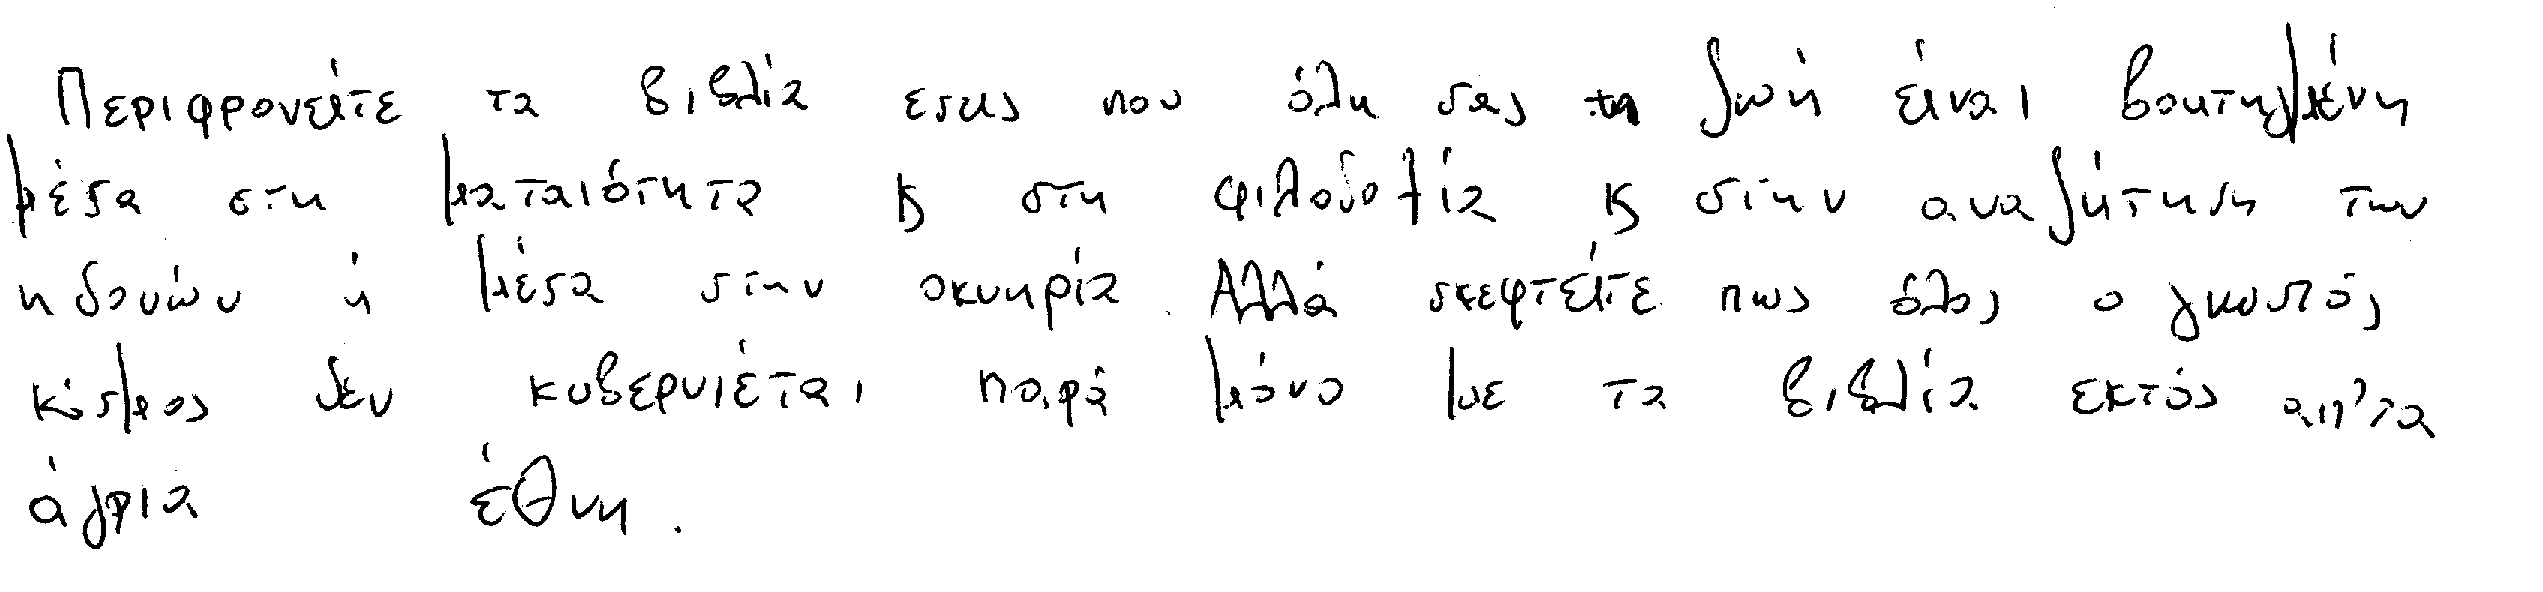 Περιφρονείτε τα βιβλία εσεις που όλη σας τη ζωή είναι βουτηγμένη
μέσα στη ματαιότητα ϗ στη φιλοδοξία ϗ στην αναζήτηση των
ηδονών ή μέσα στην οκνηρία. Αλλά σκεφτείτε πως όλος ο γνωστός
κόσμος δεν κυβερνιέται παρά μόνο με τα βιβλία εκτός απ'τα
άγρια έθνη.